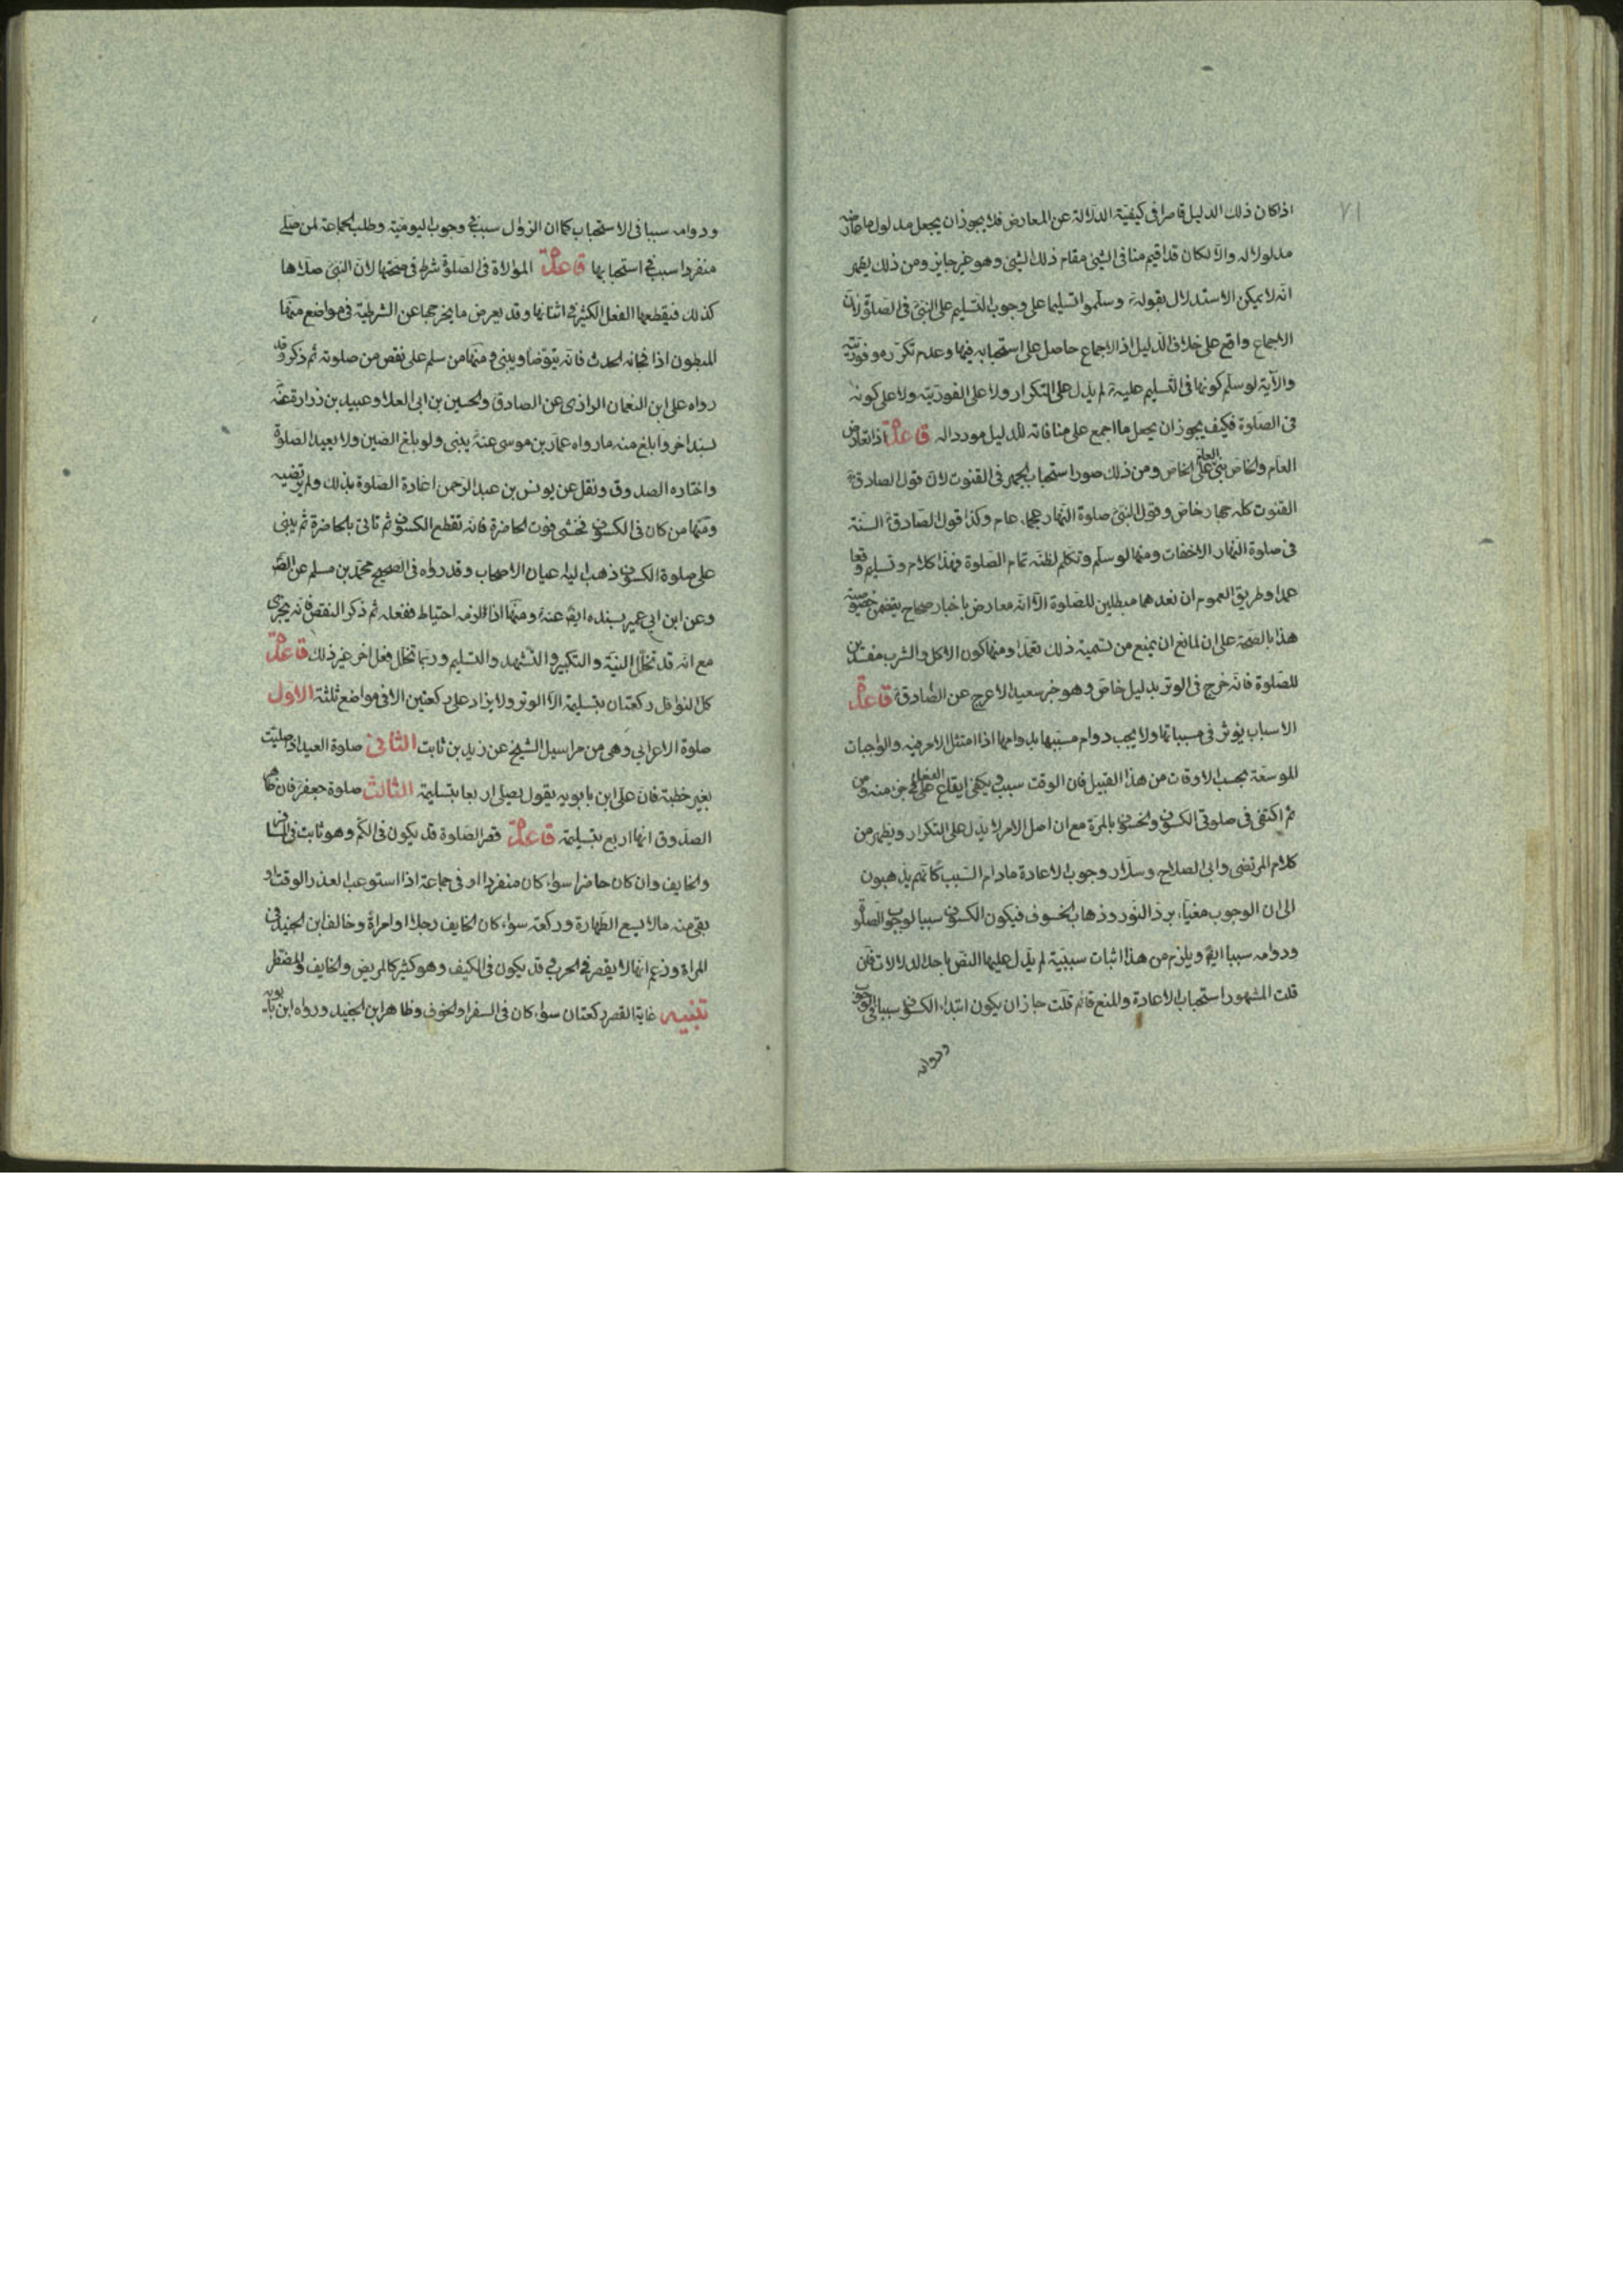 ٧١
اذا كان ذلك الدليل قاصرا فى كيفيّة الدلالة عن المعارض فلا يجوز ان يجعل مدلول ما عارضه
مدلولا له والّا لكان قد اقيم منافى الشئ مقام ذلك الشئ وهو غير جايز ومن ذلك يظهر
انّه لا يمكن الاستدلال بقوله وسلّموا تسليما على وجوب التسليم على النبىّ فى الصّلوة لانّ
الاجماع واقع على خلاف الدليل اذ الاجماع حاصل على استحبابه فيها وعدم تكرّره وفوريّته
والآية لو سلّم كونها فى التّسليم عليه لم يدلّ على التكرار ولا على الفوريّة ولا على كونه
فى الصّلوة فكيف يجوز ان يجعل ما اجمع على منافاته للدليل موردا له قاعدة اذا تعارض
العام والخاصّ بنى العام على الخاصّ ومن ذلك صور استحباب الجهر فى القنوت لانّ قول الصادق
القنوت كلّه جهار خاصّ وقول النبىّ صلوة النهار عجماء عام وكذا قول الصّادق السنة
فى صلوة النّهار الاخفات ومنها لو سلّم وتكلم لظنّه تمام الصّلوة فهذا كلام وتسليم وقعا
عمدا وطريق العموم ان نعدهما مبطلين للصّلوة الّا انّه معارض باخبار صحاح يتضمن خصوصية
هذا بالصّحة على ان لمانع ان يمنع من تسمية ذلك تعمدا ومنها كون الاكل والشرب مفسدين
للصّلوة فانّه خرج فى الوتر بدليل خاصّ وهو خبر سعيد الاعرج عن الصّادق قاعدة
الاسباب يؤثر فى مسبباتها ولا يجب دوام مسببها بدوامها اذا امتثل الامر فيه والواجبات
الموسّعة بحسب الاوقات من هذا القبيل فان الوقت سبب ويكفى ايقاع الفعل فى جزء منه ومن
ثم اكتفى فى صلوتى الكسوف والخسوف بالمرّة مع ان اصل الامر لا يدلّ على التكرار ويظهر من
كلام المرتضى وابى الصلاح وسلّار وجوب الاعادة مادام السّبب كانّهم يذهبون
الى ان الوجوب مغيّاء برد النّور وذهاب الخسوف فيكون الكسوف سببا لوجوب الصّلوة
ودوامه سببا ايضا ويلزم من هذا اثبات سببيّة لم يدلّ عليها النصّ باحد الدلالات فان
قلت المشهور استحباب الاعادة والمنع قائم قلت جاز ان يكون ابتداء الكسوف سببا فى الوجوب
ودوامه
ودوامه سببا فى الاستحباب كما ان الزوال سبب فى وجوب اليوميّة وطلب الجماعة لمن صلّى
منفردا سبب فى استحبابها قاعدة الموالاة فى الصّلوة شرط فى صحّتها لانّ النبىّ صلّاها
كذلك فيقطعها الفعل الكثير فى اثنائها وقد يعرض ما يخرجها عن الشرطيّة فى مواضع منها
المبطون اذا فجأه الحدث فانّه يتوضّا ويبنى ومنها من سلم على نقص من صلوته ثم ذكر وقد
رواه على ابن النعمان الرازى عن الصادق والحسين بن ابى العلا وعبيد بن زرارة عنه
بسند اخر وابلغ منه ما رواه عمّار بن موسى عنه يبنى ولو بلغ الصّين ولا يعيد الصّلوة
واختاره الصدوق ونقل عن يونس بن عبد الرّحمن اعادة الصّلوة بذلك ولم يرتضيه
ومنها من كان فى الكسوف فخشى فوت الحاضرة فانّه تقطع الكسوف ثم تاتى بالحاضرة ثم يبنى
على صلوة الكسوف ذهب اليه اعيان الاصحاب وقد رواه فى الصحيح محمّد بن مسلم عن الصّ
وعن ابن ابى عمير بسنده ايضا عنه ومنها اذا لزمه احتياط ففعله ثم ذكر النقص فانّه يجزى
مع انّه قد تخلّل النيّة والتكبير والتّشهد والتسليم وربّما تخلّل فعل اخر غير ذلك قاعدة
كل النوافل ركعتان بتسليمة الّا الوتر ولا يزاد على ركعتين الا فى مواضع ثلثة الاوّل
صلوة الاعرابى وهى من مراسيل الشيخ عن زيد بن ثابت الثانى صلوة العيد اذا صليت
بغير خطبة فانّ على ابن بابويه يقول يصلى اربعا بتسليمة الثالث صلوة جعفر فان ظاهر
الصدوق انها اربع بتسليمة قاعدة قصر الصّلوة قد يكون فى الكمّ وهو ثابت فى السفر
والخايف وان كان حاضرا سواء كان منفردا او فى جماعة اذا استوعب العذر الوقت او
بقى منه ما لا يسع الطّهارة وركعة سواء كان الخايف رجلا او امراة وخالف ابن الجنيد فى
المراة وزعم انها لا يقصر فى الحرب وقد يكون فى الكيف وهو كثير كالمريض والخايف والمضطر
تنبيه غاية القصر ركعتان سواء كان فى السفر او الخوف وظاهر ابن الجنيد ورواه ابن بابويه